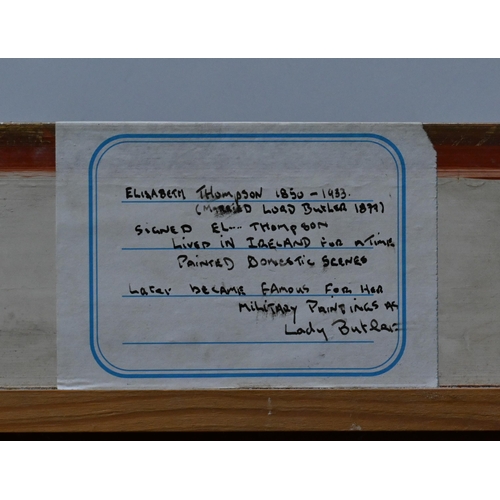 ELISABETH THOMPSON 1850 - 1933.
(MARRIED LORD BUTLER 1877)
SIGNED EL... THOMPSON
LIVED IN IRELAND FOR A TIME
PAINTED DOMESTIC SCENES
LATER BECAME FAMOUS FOR HER
MILITARY PAINTINGS AS
Lady Butler